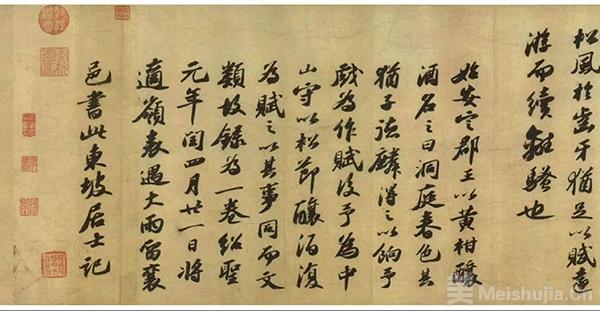 松風於齒牙猶足以賦遠
游而續離騷也
始安定郡王以黃柑釀
酒名之曰洞庭春色其
猶子德麟得之以餉予
戲為作賦後予為中
山守以松節釀酒復
為賦之以其事同而文
類故錄為一卷紹聖
元年閏四月廿一日將
適嶺表遇大雨留襄
邑書此東坡居士記
Meishujia.Cn